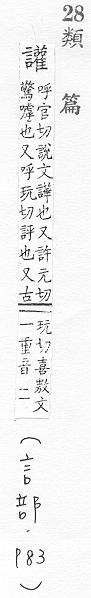 28
類篇
讙
呼官切說文譁也又許元切
驚噓也又呼玩切評也又古
玩切喜敖文
一重音二
(言部 P83)